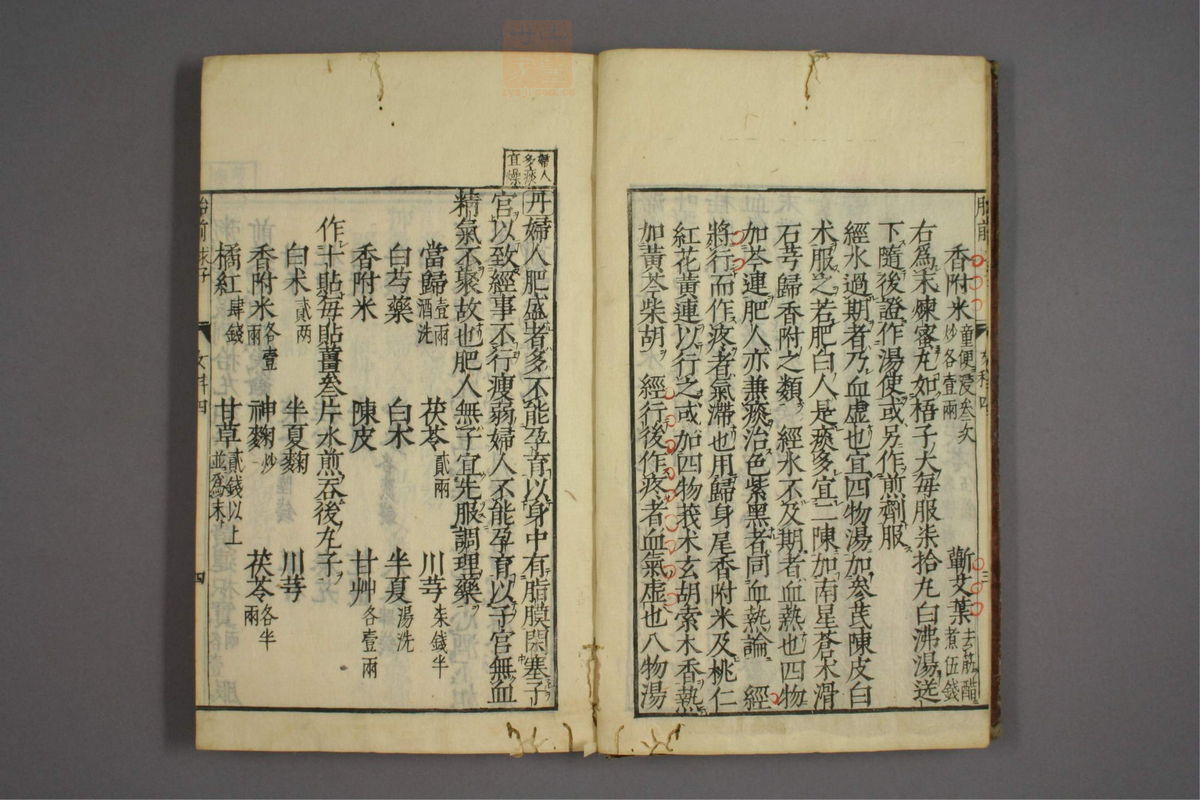 香附米 童便浸叁次 炒各壹兩 蘄艾葉 去筋醋 煮伍錢
右爲末煉蜜丸如梧子大每服柒拾丸白沸湯送
下隨後證作湯使或另作煎劑服
經水過期者乃血虚也宜四物湯加參芪陳皮白
术服之若肥白人是痰多宜二陳加南星蒼朮滑
石芎歸香附之類 經水不及期者血熱也四物
加芩連肥人亦兼痰治色紫黑者同血熱論 經
將行而作疼者氣滯也用歸身尾香附米及桃仁
紅花黃連以行之或加四物莪朮玄胡索木香熱
加黃芩柴胡 經行後作疼者血氣虚也八物湯
婦人
多痰
宜燥
丹婦人肥盛者多不能孕育以身中有脂膜閉塞子
宮以致經事不行瘦弱婦人不能孕育以子宮無血
精氣不聚故也肥人無子宜先服調理藥
當歸 壹兩 酒洗 茯苓 貳兩 川芎 柒錢半
白芍藥 白朮 半夏 湯洗
香附米 陳皮 甘艸 各壹兩
作十貼每貼薑叁片水煎吞後丸子
白术 貳两 半夏麴 川芎
香附米 各壹兩 神麴 炒 茯苓 各半兩
橘紅 肆錢 甘草 貳錢以上 並爲末
胎前 求子
女科四
四